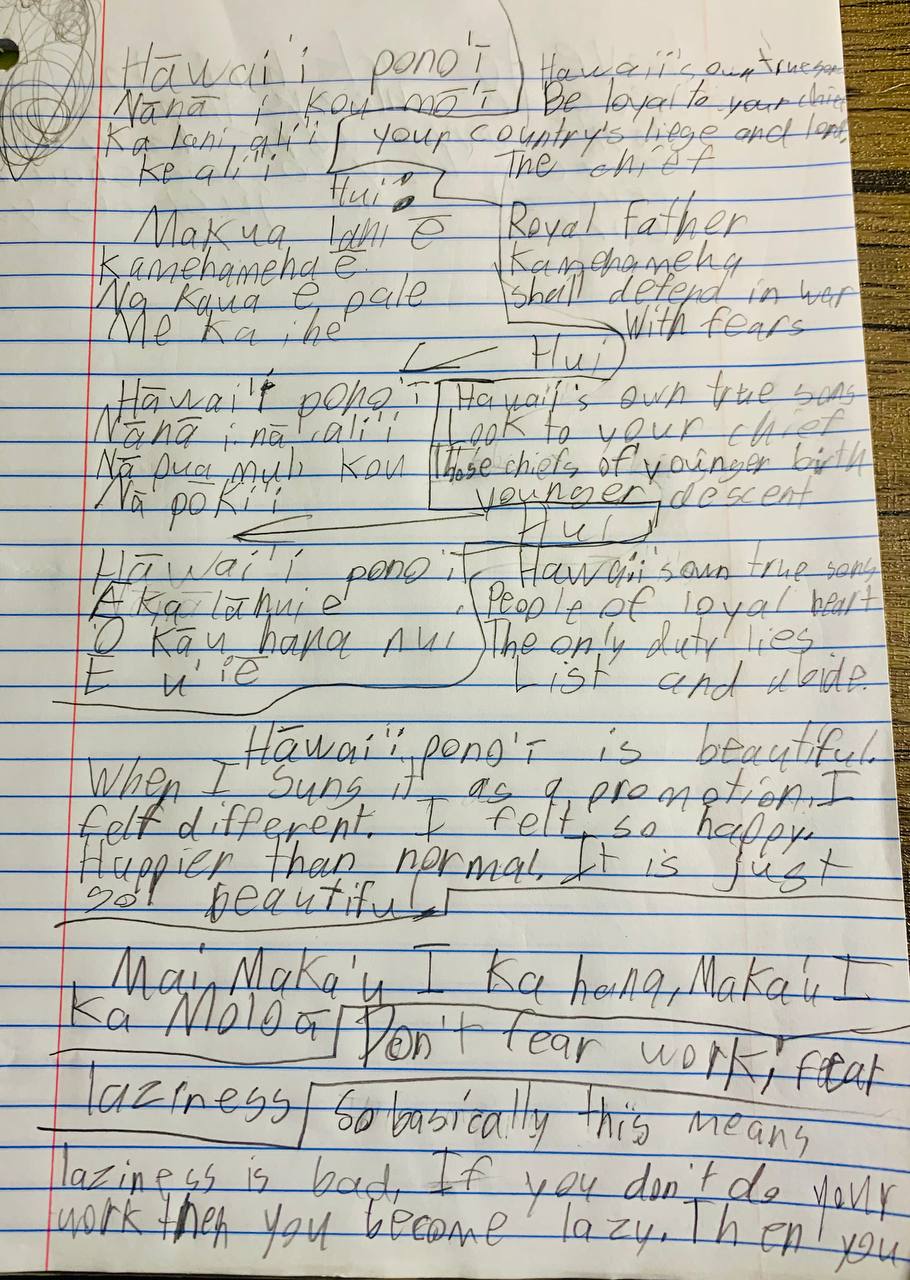 Hāwai'i pono'ī
Nānā i kou mō'ī
Ka lani ali'i
ke ali'i
Hawaii's own true sons
Be loyal to your chief
your country's liege and lord
The chief
Hui:
Makua lani ē
Kamehameha ē
Na kaua e pale
Me ka ihe
Royal Father
Kamehameha
shall defend in war
With fears
Hui
Hāwai'i pono'ī
Nānā i nā ali'i
Nā pua muli kou
Nā pōki'i
Hawaii's own true sons
Look to your chief
Those chiefs of younger birth
younger descent
Hui
Hāwai'i pono'ī
A ka lāhui e
O Kāu hana nui
E u'iē
Hawaii's own true sons
People of loyal heart
The only duty lies
List and abide.
Hāwai'i pono'ī is beautiful.
When I sung it as a promotion, I
felt different. I felt so happy.
Happier than normal. It is just
so beautiful
Mai Maka'u I Ka hana, Maka'u I
Ka Moloā
Don't fear work; fear
laziness
So basically this means
laziness is bad. If you don't do your
work then you become lazy. Then you